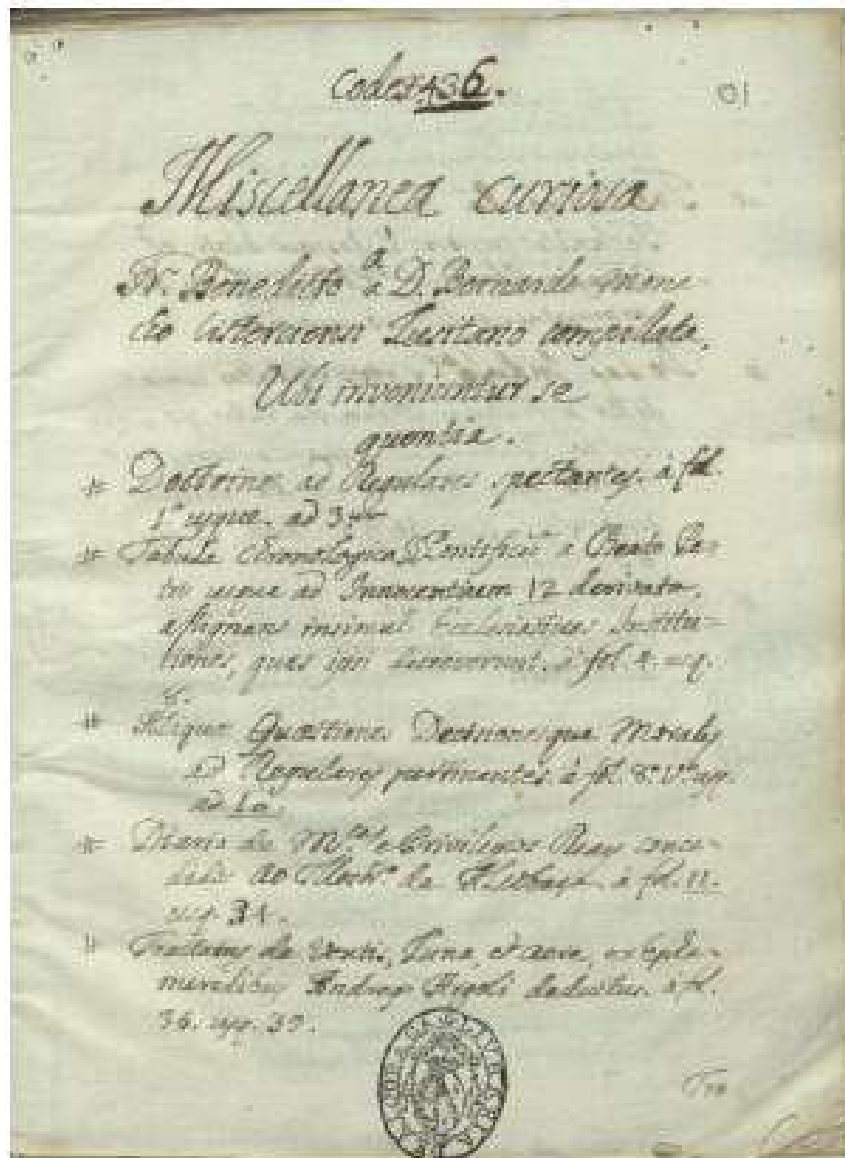 Codex 436.
01
Miscellanea curiosa.
Fr. Benedicto a D. Bernardo Mona-
cho Cisterciensi Lusitano compilata,
Ubi inveniuntur se
quentia.
Doctrinæ ad Regulares spectantes. à fol.
1º usque ad 3
Tabula Chronologica Pontificũ a Beato Pe-
tro usque ad Innocentium 12 derivata,
assignans insimul Ecclesiasticas Institu-
tiones, quas ipsi decreverunt. à fol. 4. usq.
8.
Aliquæ Quæstiones Decisionesque Morales
ad Regulares pertinentes. à fol. 8. vº usq.
ad 10.
de M.ces e Privilegios Reaes conce-
didos ao Mostrº de Alcobaça. à fol. 11.
usq. 34.
Tractatus de Ventis, Luna, et aere, ex Ephe-
meridibus Andreæ Argoli deductus. à fol.
36. usq. 39.